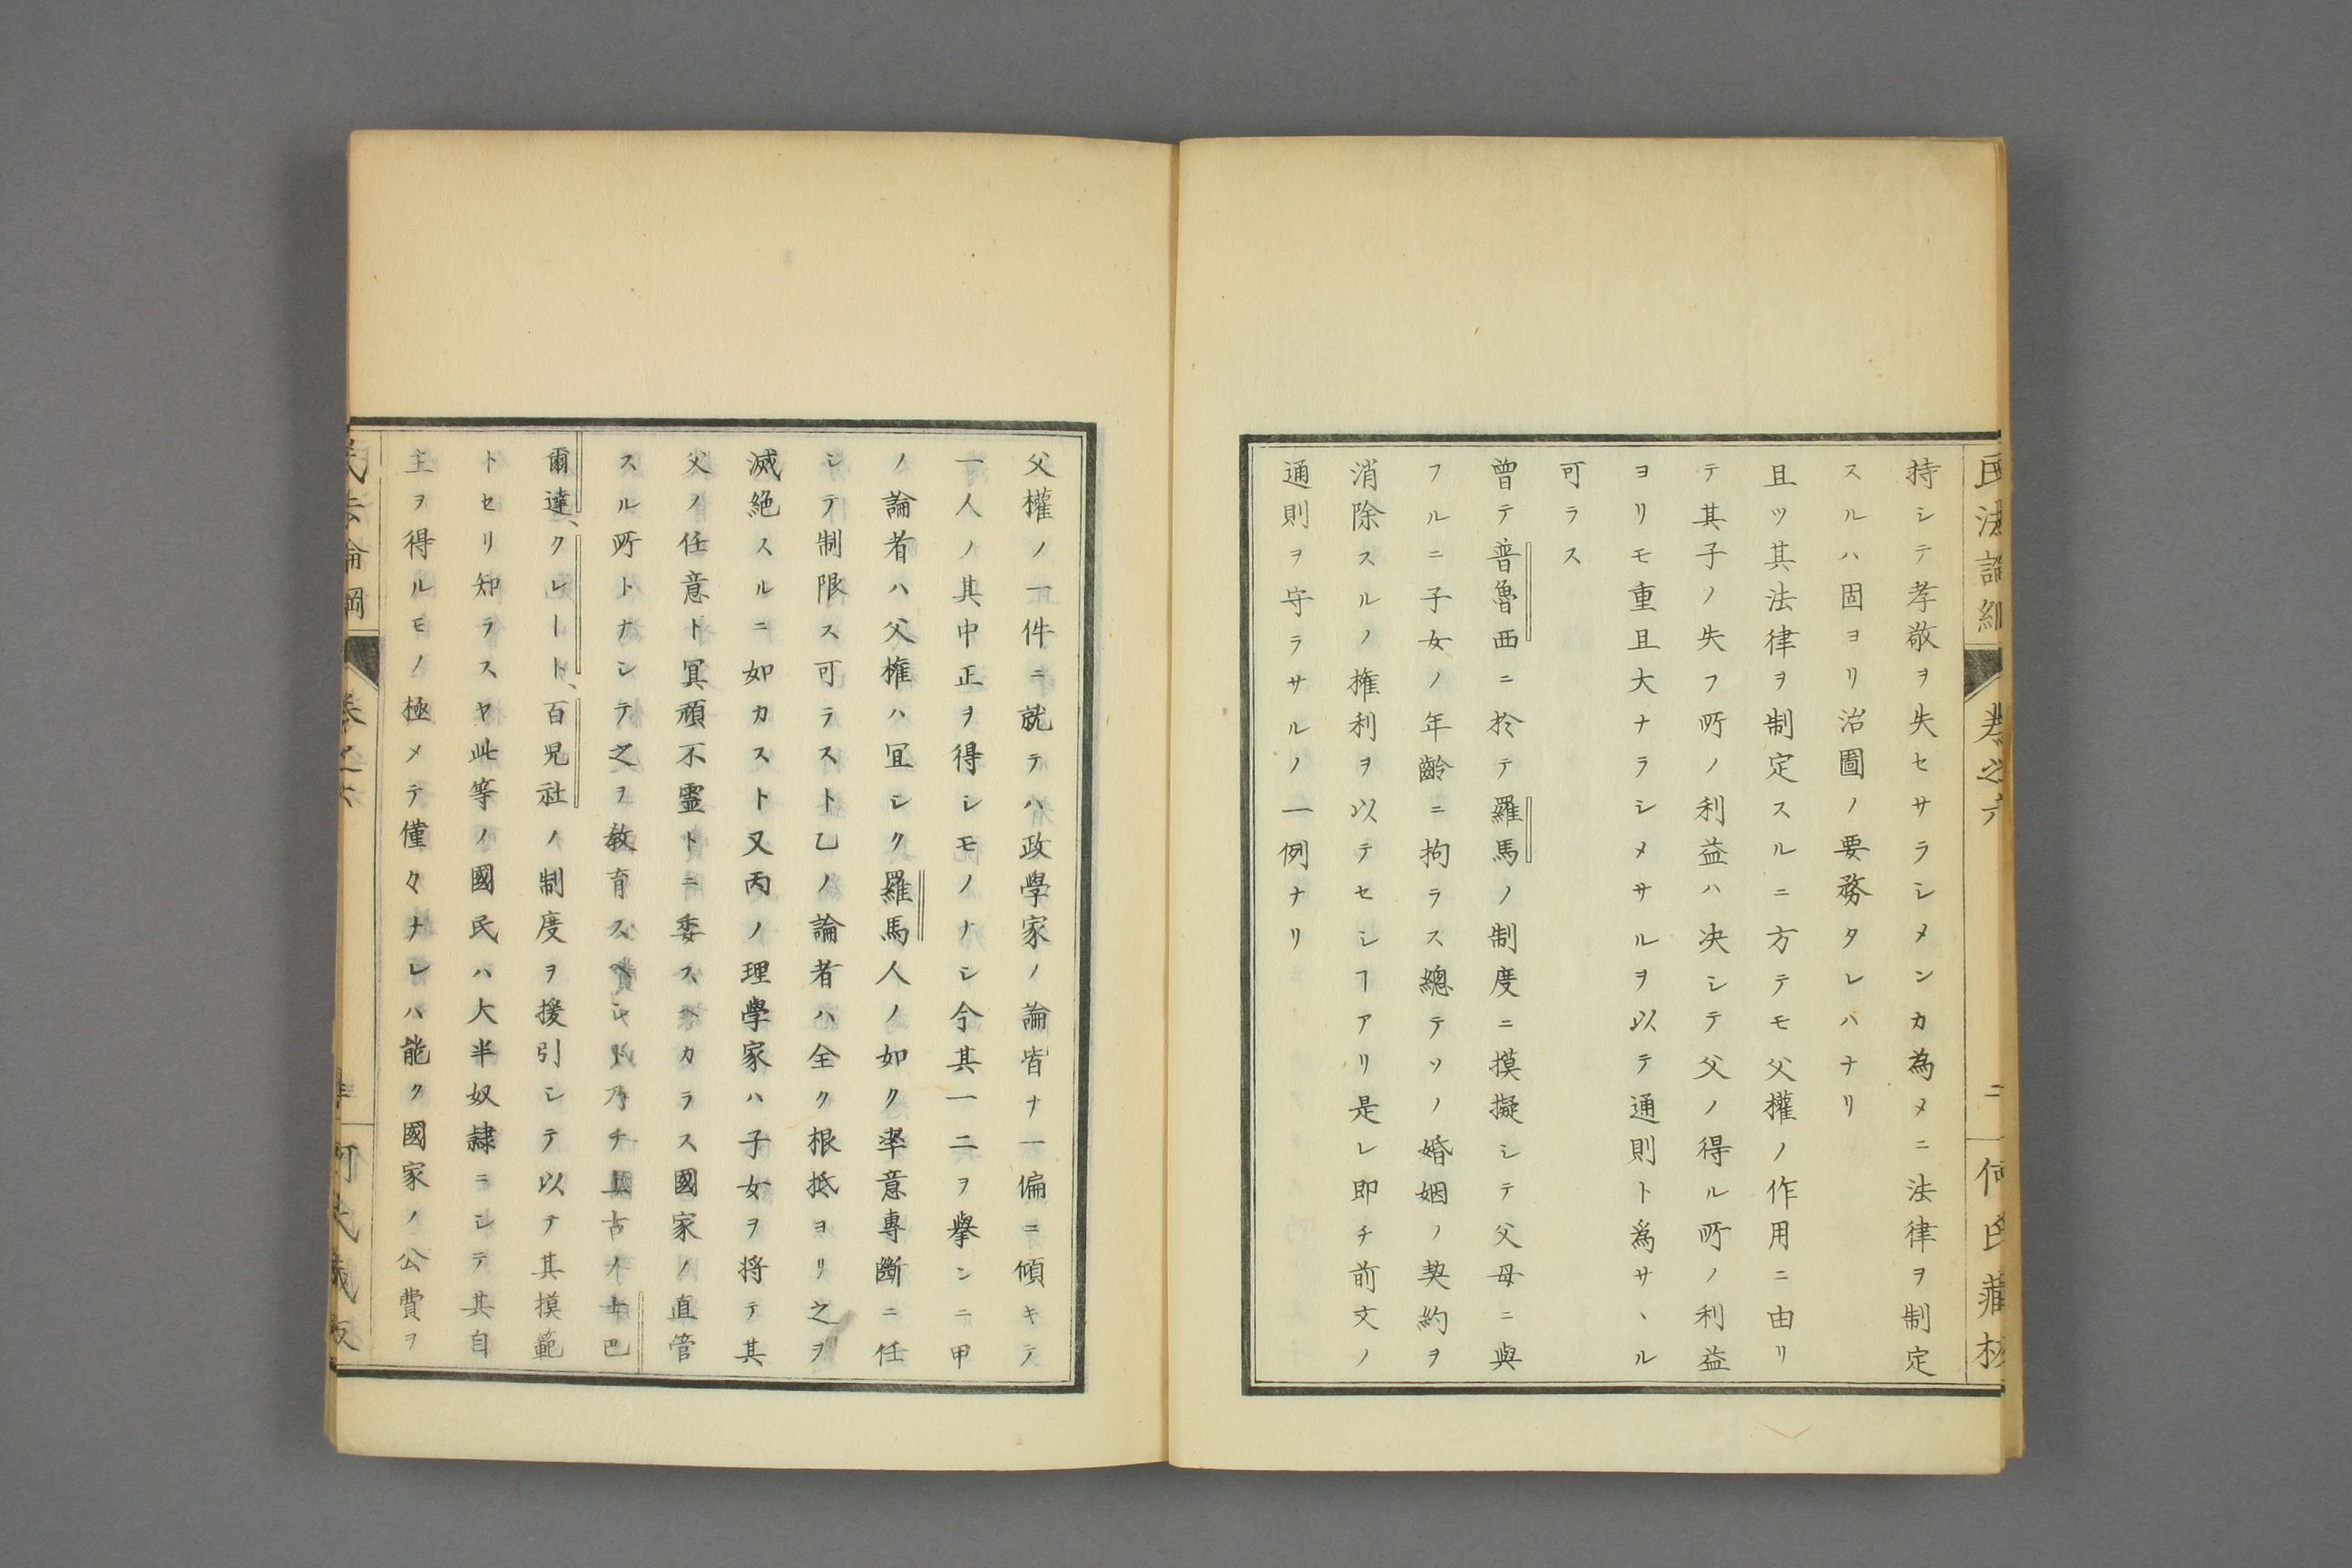 民法論綱
卷之六
二
何氏藏板
持シテ孝敬ヲ失セサラシメンカ為メニ法律ヲ制定
スルハ固ヨリ治圖ノ要務タレハナリ
且ツ其法律ヲ制定スルニ方テモ父權ノ作用ニ由リ
テ其子ノ失フ所ノ利益ハ决シテ父ノ得ル所ノ利益
ヨリモ重且大ナラシメサルヲ以テ通則ト為サヽル
可ラス
曽テ普魯西ニ於テ羅馬ノ制度ニ摸擬シテ父母ニ與
フルニ子女ノ年齡ニ拘ラス總テソノ婚姻ノ契約ヲ
消除スルノ権利ヲ以テセシヿアリ是レ即チ前文ノ
通則ヲ守ラサルノ一例ナリ
父權ノ一件ニ就テハ政學家ノ論皆ナ一偏ニ傾キテ
一人ノ其中正ヲ得シモノナシ今其一二ヲ擧ンニ甲
ノ論者ハ父権ハ冝シク羅馬人ノ如ク率意專斷ニ任
シテ制限ス可ラスト乙ノ論者ハ全ク根抵ヨリ之ヲ
滅絶スルニ如カスト又丙ノ理學家ハ子女ヲ将テ其
父ノ任意ト冥頑不靈トニ委スヘカラス國家ノ直管
スル所トナシテ之ヲ教育スヘシト乃チ上古ノ士巴
爾達、クレート、百兒社ノ制度ヲ援引シテ以テ其摸範
トセリ知ラスヤ此等ノ國民ハ大半奴隷ニシテ其自
主ヲ得ルモノ極メテ僅々ナレハ能ク國家ノ公費ヲ
民法論綱
卷之六
何氏藏板